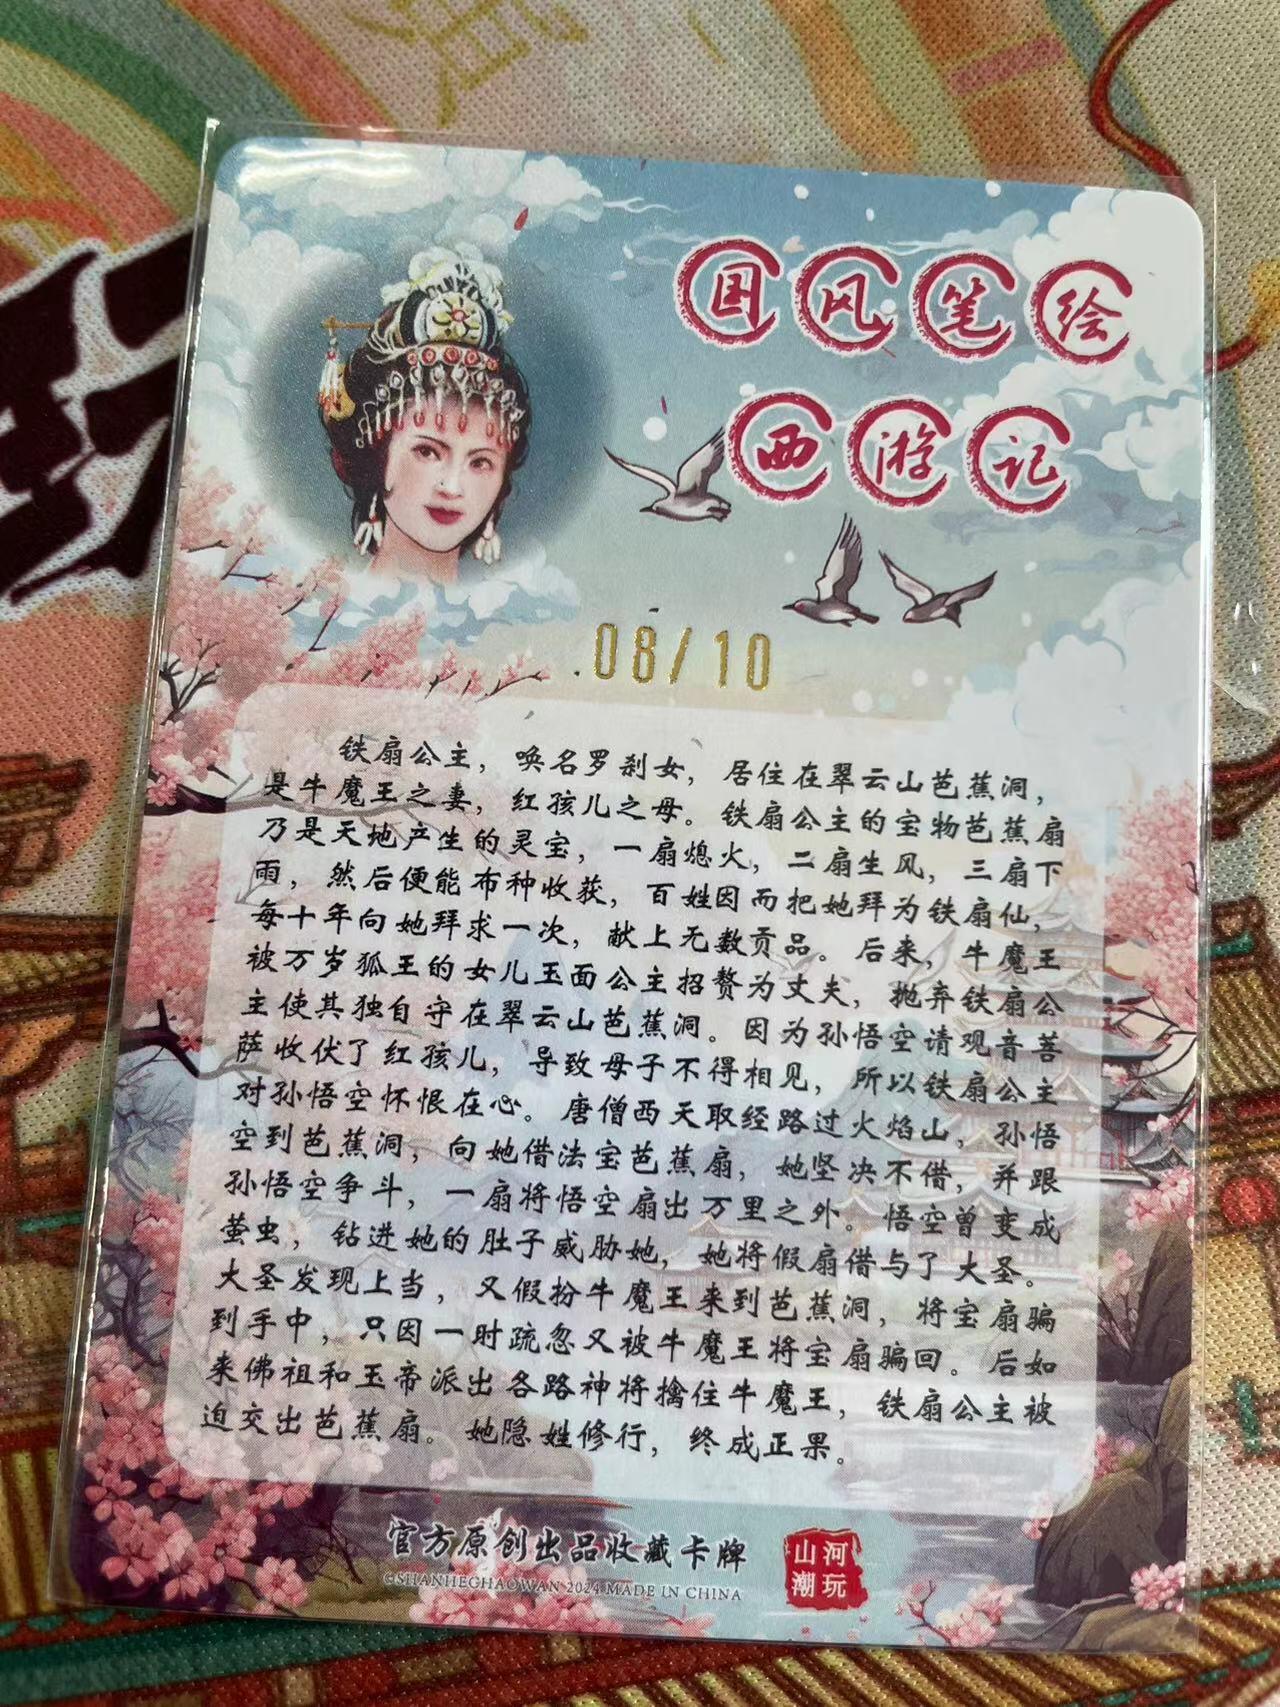 国风笔绘
西游记
08/10
铁扇公主，唤名罗刹女，居住在翠云山芭蕉洞，
是牛魔王之妻，红孩儿之母。铁扇公主的宝物芭蕉扇
乃是天地产生的灵宝，一扇熄火，二扇生风，三扇下
雨，然后便能布种收获，百姓因而把她拜为铁扇仙，
每十年向她拜求一次，献上无数贡品。后来，牛魔王
被万岁狐王的女儿玉面公主招赘为丈夫，抛弃铁扇公
主使其独自守在翠云山芭蕉洞。因为孙悟空请观音菩
萨收伏了红孩儿，导致母子不得相见，所以铁扇公主
对孙悟空怀恨在心。唐僧西天取经路过火焰山，孙悟
空到芭蕉洞，向她借法宝芭蕉扇，她坚决不借，并跟
孙悟空争斗，一扇将悟空扇出万里之外。悟空曾变成
萤虫，钻进她的肚子威胁她，她将假扇借与了大圣。
大圣发现上当，又假扮牛魔王来到芭蕉洞，将宝扇骗
到手中，只因一时疏忽又被牛魔王将宝扇骗回。后如
来佛祖和玉帝派出各路神将擒住牛魔王，铁扇公主被
迫交出芭蕉扇。她隐姓修行，终成正果。
官方原创出品收藏卡牌
©SHANHEGHAOWAN 2024 MADE IN CHINA
山河
潮玩